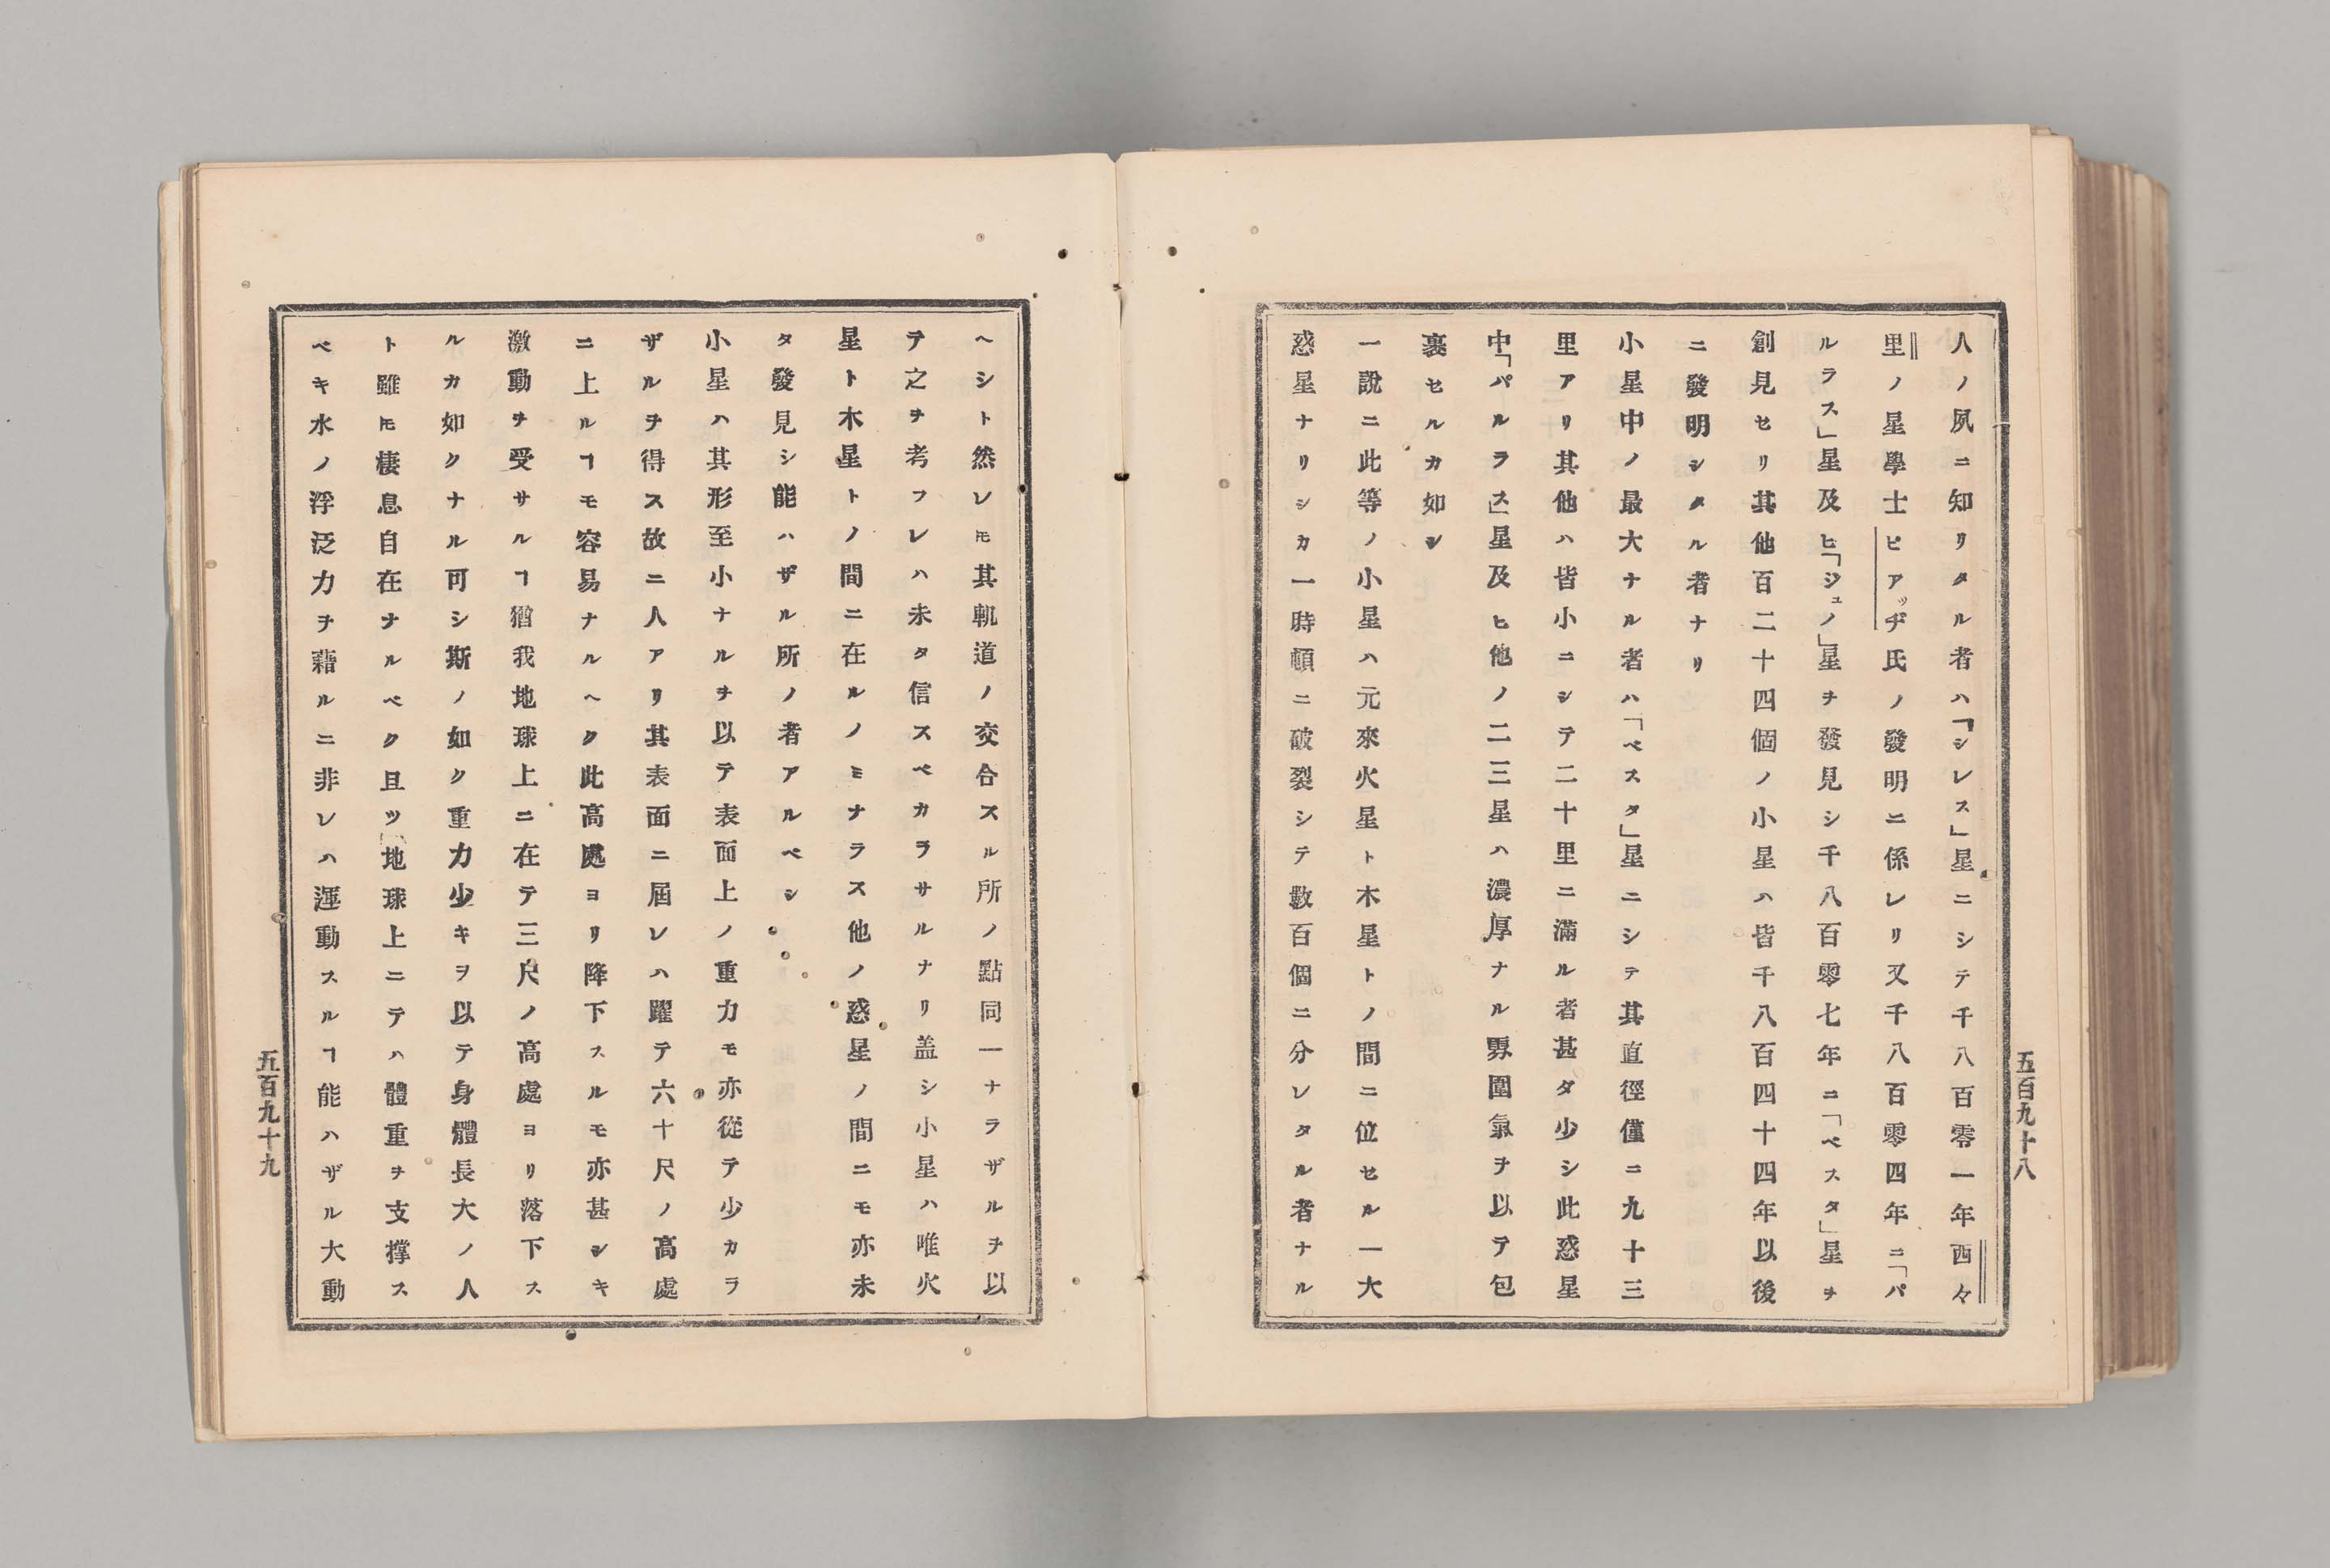 人ノ夙ニ知リタル者ハ「シレス」星ニシテ千八百零一年西々
里ノ星學士ピアッヂ氏ノ發明ニ係レリ又千八百零四年ニ「パ
ルラス」星及ヒ「ジュノ」星ヲ發見シ千八百零七年ニ「ベスタ」星ヲ
創見セリ其他百二十四個ノ小星ハ皆千八百四十四年以後
ニ發明シタル者ナリ
小星中ノ最大ナル者ハ「ベスタ」星ニシテ其直徑僅ニ九十三
里アリ其他ハ皆小ニシテ二十里ニ滿ル者甚タ少シ此惑星
中「パルラス」星及ヒ他ノ二三星ハ濃厚ナル雰圍氣ヲ以テ包
裹セルカ如シ
一說ニ此等ノ小星ハ元來火星ト木星トノ間ニ位セル一大
惑星ナリシカ一時頓ニ破裂シテ數百個ニ分レタル者ナル
五百九十八
ヘシト然レ𪜈其軌道ノ交合スル所ノ點同一ナラザルヲ以
テ之ヲ考フレハ未タ信スベカラサルナリ盖シ小星ハ唯火
星ト木星トノ間ニ在ルノミナラス他ノ惑星ノ間ニモ亦未
タ發見シ能ハザル所ノ者アルベシ
小星ハ其形至小ナルヲ以テ表面上ノ重力モ亦從テ少カラ
ザルヲ得ス故ニ人アリ其表面ニ屆レハ躍テ六十尺ノ高處
ニ上ルヿモ容易ナルヘク此高處ヨリ降下スルモ亦甚シキ
激動ヲ受サルヿ猶我地球上ニ在テ三尺ノ高處ヨリ落下ス
ルカ如クナル可シ斯ノ如ク重力少キヲ以テ身體長大ノ人
ト雖𪜈棲息自在ナルベク且ツ「地球上ニテハ體重ヲ支撐ス
ベキ水ノ浮泛力ヲ藉ルニ非レハ運動スルヿ能ハザル大動
五百九十九